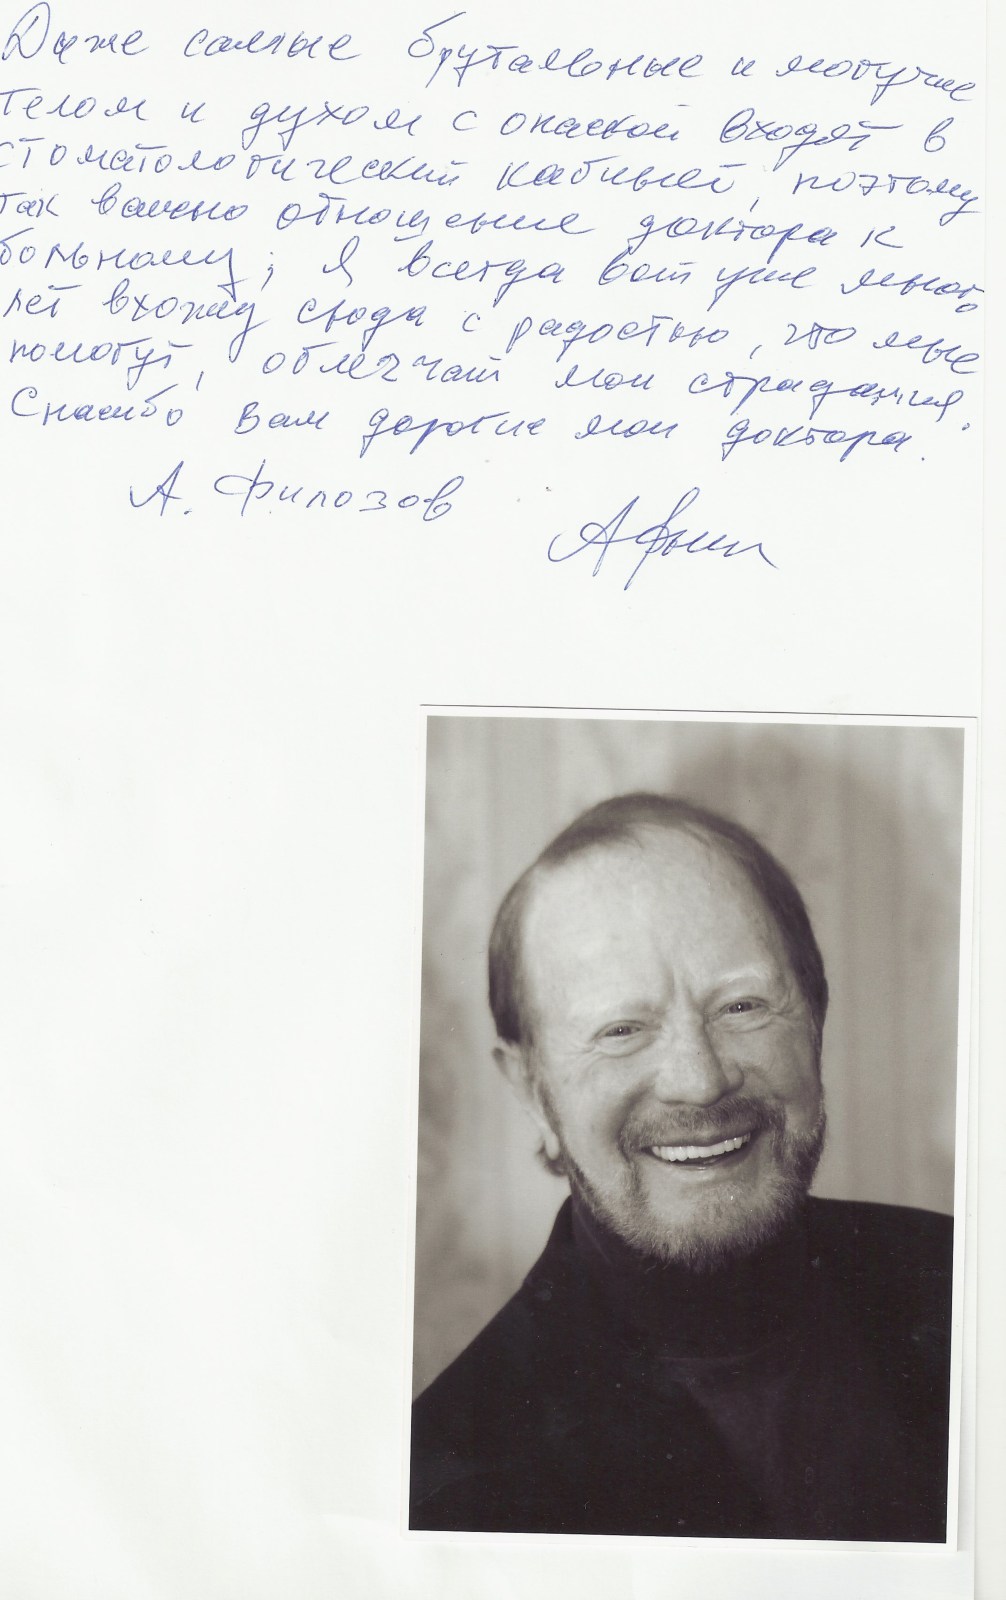 Даже самые брутальные и могучие
телом и духом с опаской входят в
стоматологический кабинет, поэтому
так важно отношение доктора к
больному; я всегда вот уже много
лет вхожу сюда с радостью, что мне
помогут, облегчат мои страдания.
Спасибо Вам дорогие мои доктора.
А. Филозов